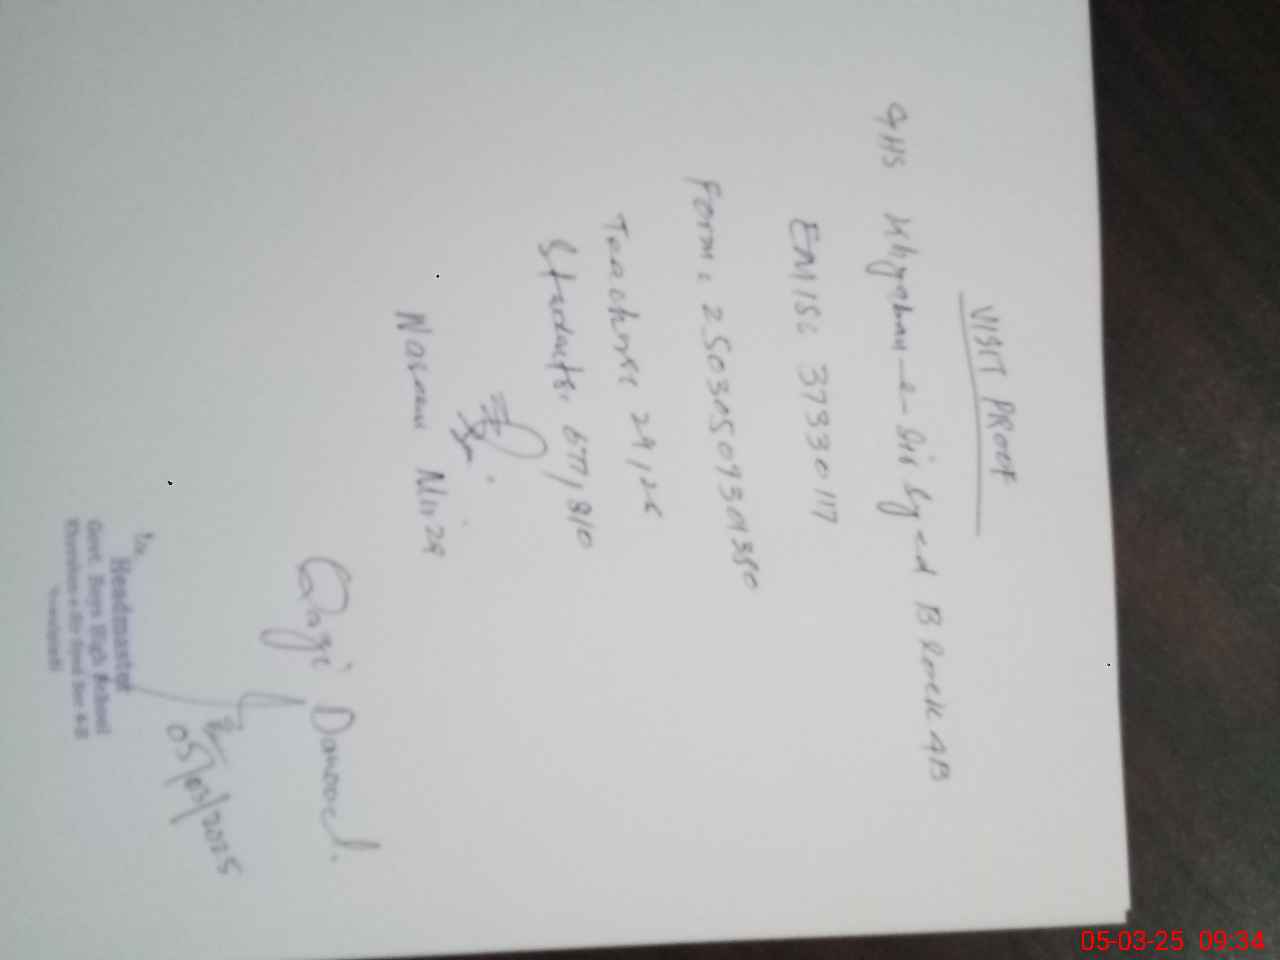 VISIT PROOF
GHS Khyaban-e-Sir Syed Block 4B
EMIS: 37330117
Form: 25030509301350
Teachers: 24/25
Students: 677/810
Nasreen Mirza
Qazi Dawood.
05/03/2025
Headmaster
Govt. Boys High School
Khayaban-e-Sir Syed Sec 4-B
Rawalpindi
05-03-25 09:34